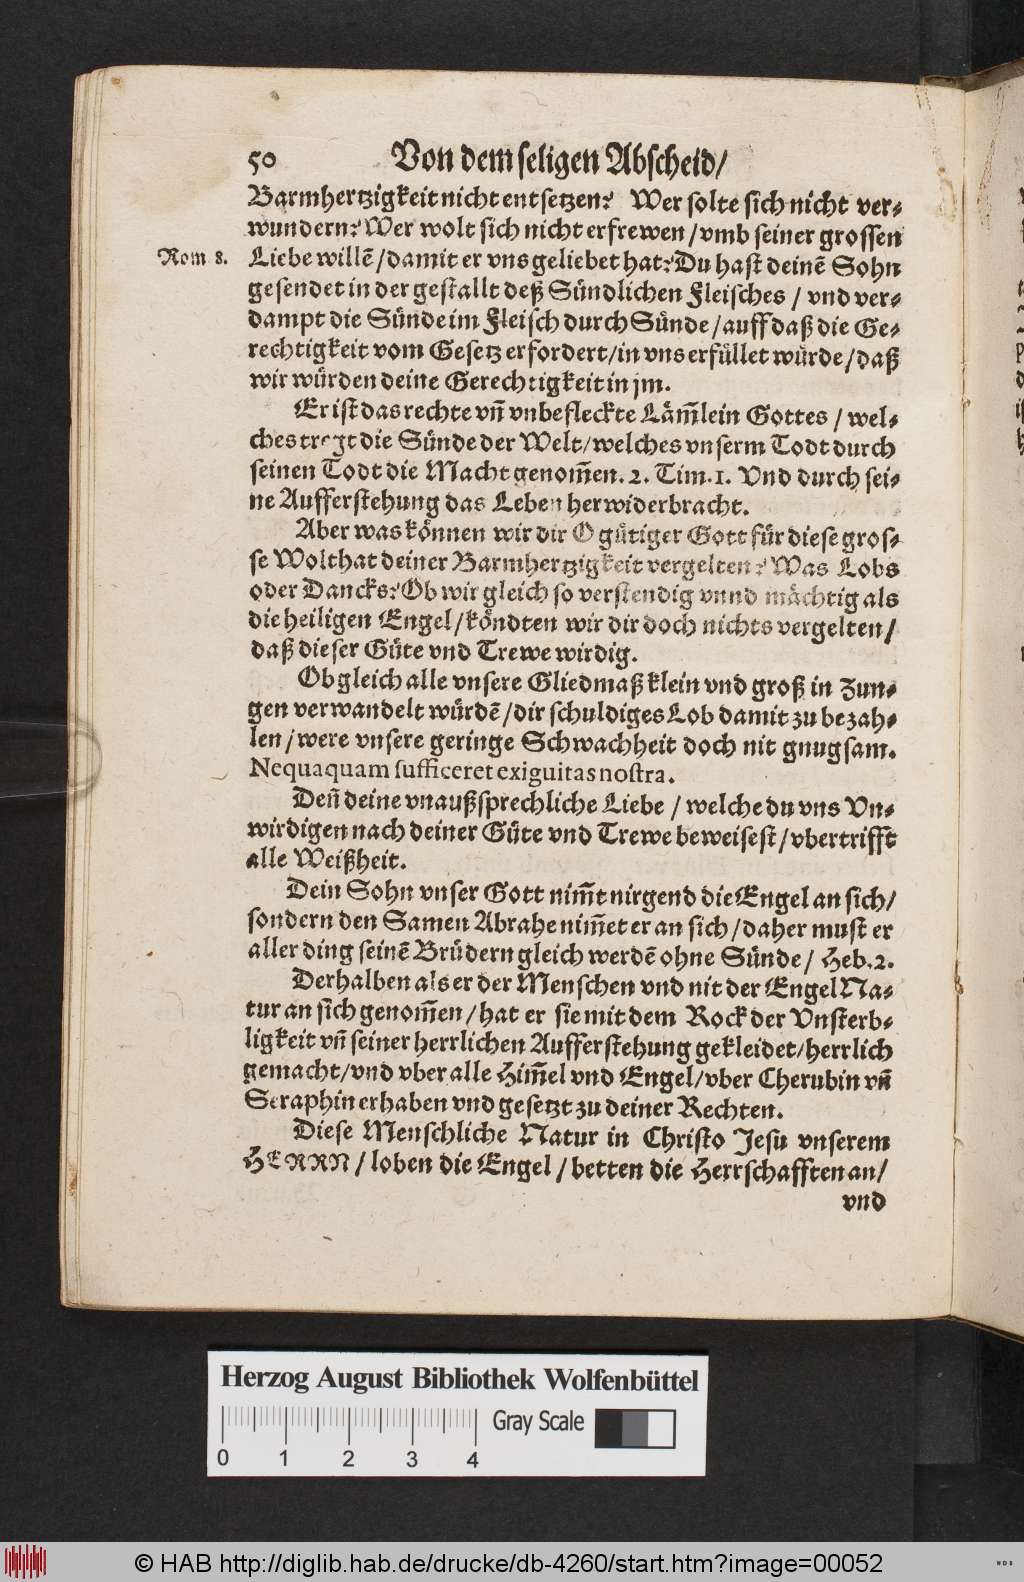 50 Von dem seligen Abscheid/
Barmhertzigkeit nicht entsetzen? Wer solte sich nicht ver-
wundern? Wer wolt sich nicht erfrewen/vmb seiner grossen
Rom 8. Liebe willẽ/damit er vns geliebet hat? Du hast deinẽ Sohn
gesendet in der gestallt deß Sündlichen Fleisches / vnd ver-
dampt die Sünde im Fleisch durch Sünde/auff daß die Ge-
rechtigkeit vom Gesetz erfordert/in vns erfüllet würde/daß
wir würden deine Gerechtigkeit in jm.
Er ist das rechte vñ vnbefleckte Läm̃lein Gottes / wel-
ches tregt die Sünde der Welt/welches vnserm Todt durch
seinen Todt die Macht genom̃en. 2. Tim. 1. Vnd durch sei-
ne Aufferstehung das Leben herwiderbracht.
Aber was können wir dir O gütiger Gott für diese gros-
se Wolthat deiner Barmhertzigkeit vergelten? Was Lobs
oder Dancks? Ob wir gleich so verstendig vnnd mächtig als
die heiligen Engel/köndten wir dir doch nichts vergelten/
daß dieser Güte vnd Trewe wirdig.
Ob gleich alle vnsere Gliedmaß klein vnd groß in Zun-
gen verwandelt würdẽ/dir schuldiges Lob damit zu bezah-
len/were vnsere geringe Schwachheit doch nit gnugsam.
Nequaquam sufficeret exiguitas nostra.
Deñ deine vnaußsprechliche Liebe / welche du vns Vn-
wirdigen nach deiner Güte vnd Trewe beweisest/vbertrifft
alle Weißheit.
Dein Sohn vnser Gott nim̃t nirgend die Engel an sich/
sondern den Samen Abrahe nim̃et er an sich/daher must er
aller ding seinẽ Brüdern gleich werdẽ ohne Sünde/ Heb. 2.
Derhalben als er der Menschen vnd nit der Engel Na-
tur an sich genom̃en/hat er sie mit dem Rock der Vnsterb-
ligkeit vñ seiner herrlichen Aufferstehung gekleidet/herrlich
gemacht/vnd vber alle Him̃el vnd Engel/vber Cherubin vñ
Seraphin erhaben vnd gesetzt zu deiner Rechten.
Diese Menschliche Natur in Christo Jesu vnserem
HERRN/loben die Engel/betten die Herrschafften an/
vnd
Herzog August Bibliothek Wolfenbüttel
Gray Scale
0 1 2 3 4
© HAB http://diglib.hab.de/drucke/db-4260/start.htm?image=00052